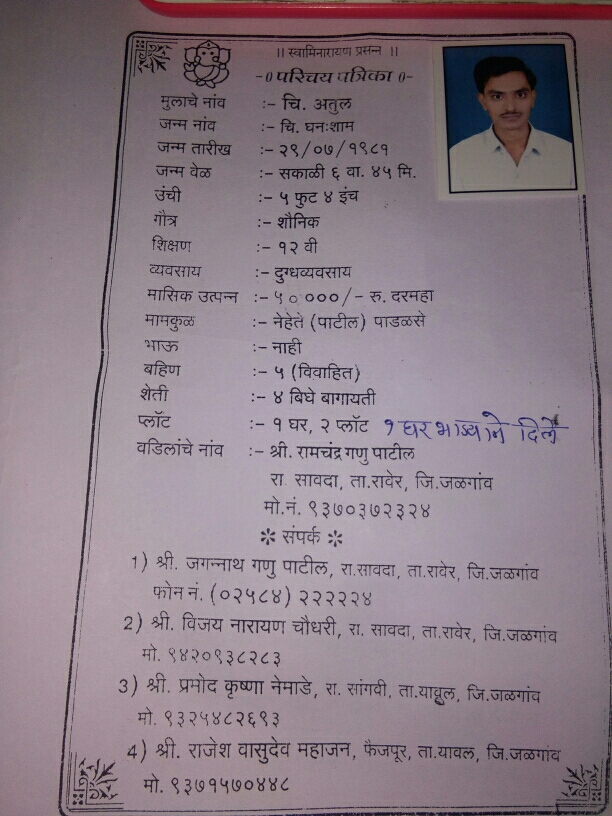 ।। स्वामिनारायण प्रसन्न ।।
-० परिचय पत्रिका ०-
मुलाचे नांव :- चि. अतुल
जन्म नांव :- चि. घनःशाम
जन्म तारीख :- २९/०७/१९८१
जन्म वेळ :- सकाळी ६ वा. ४५ मि.
उंची :- ५ फुट ४ इंच
गौत्र :- शौनिक
शिक्षण :- १२ वी
व्यवसाय :- दुग्धव्यवसाय
मासिक उत्पन्न :- ५००००/- रु. दरमहा
मामकुळ :- नेहेते (पाटील) पाडळसे
भाऊ :- नाही
बहिण :- ५ (विवाहित)
शेती :- ४ बिघे बागायती
प्लॉट :- १ घर, २ प्लॉट १ घर भाड्याने दिले
वडिलांचे नांव :- श्री. रामचंद्र गणु पाटील
रा. सावदा, ता.रावेर, जि.जळगांव
मो.नं. ९३७०३७२३२४
✲ संपर्क ✲
1) श्री. जगन्नाथ गणु पाटील, रा.सावदा, ता.रावेर, जि.जळगांव
फोन नं. (०२५८४) २२२२२४
2) श्री. विजय नारायण चौधरी, रा. सावदा, ता.रावेर, जि.जळगांव
मो. ९४२०९३८२८३
3) श्री. प्रमोद कृष्णा नेमाडे, रा. सांगवी, ता.यावल, जि.जळगांव
मो. ९३२५४८२६९३
4) श्री. राजेश वासुदेव महाजन, फैजपूर, ता.यावल, जि.जळगांव
मो. ९३७१५७०४४८